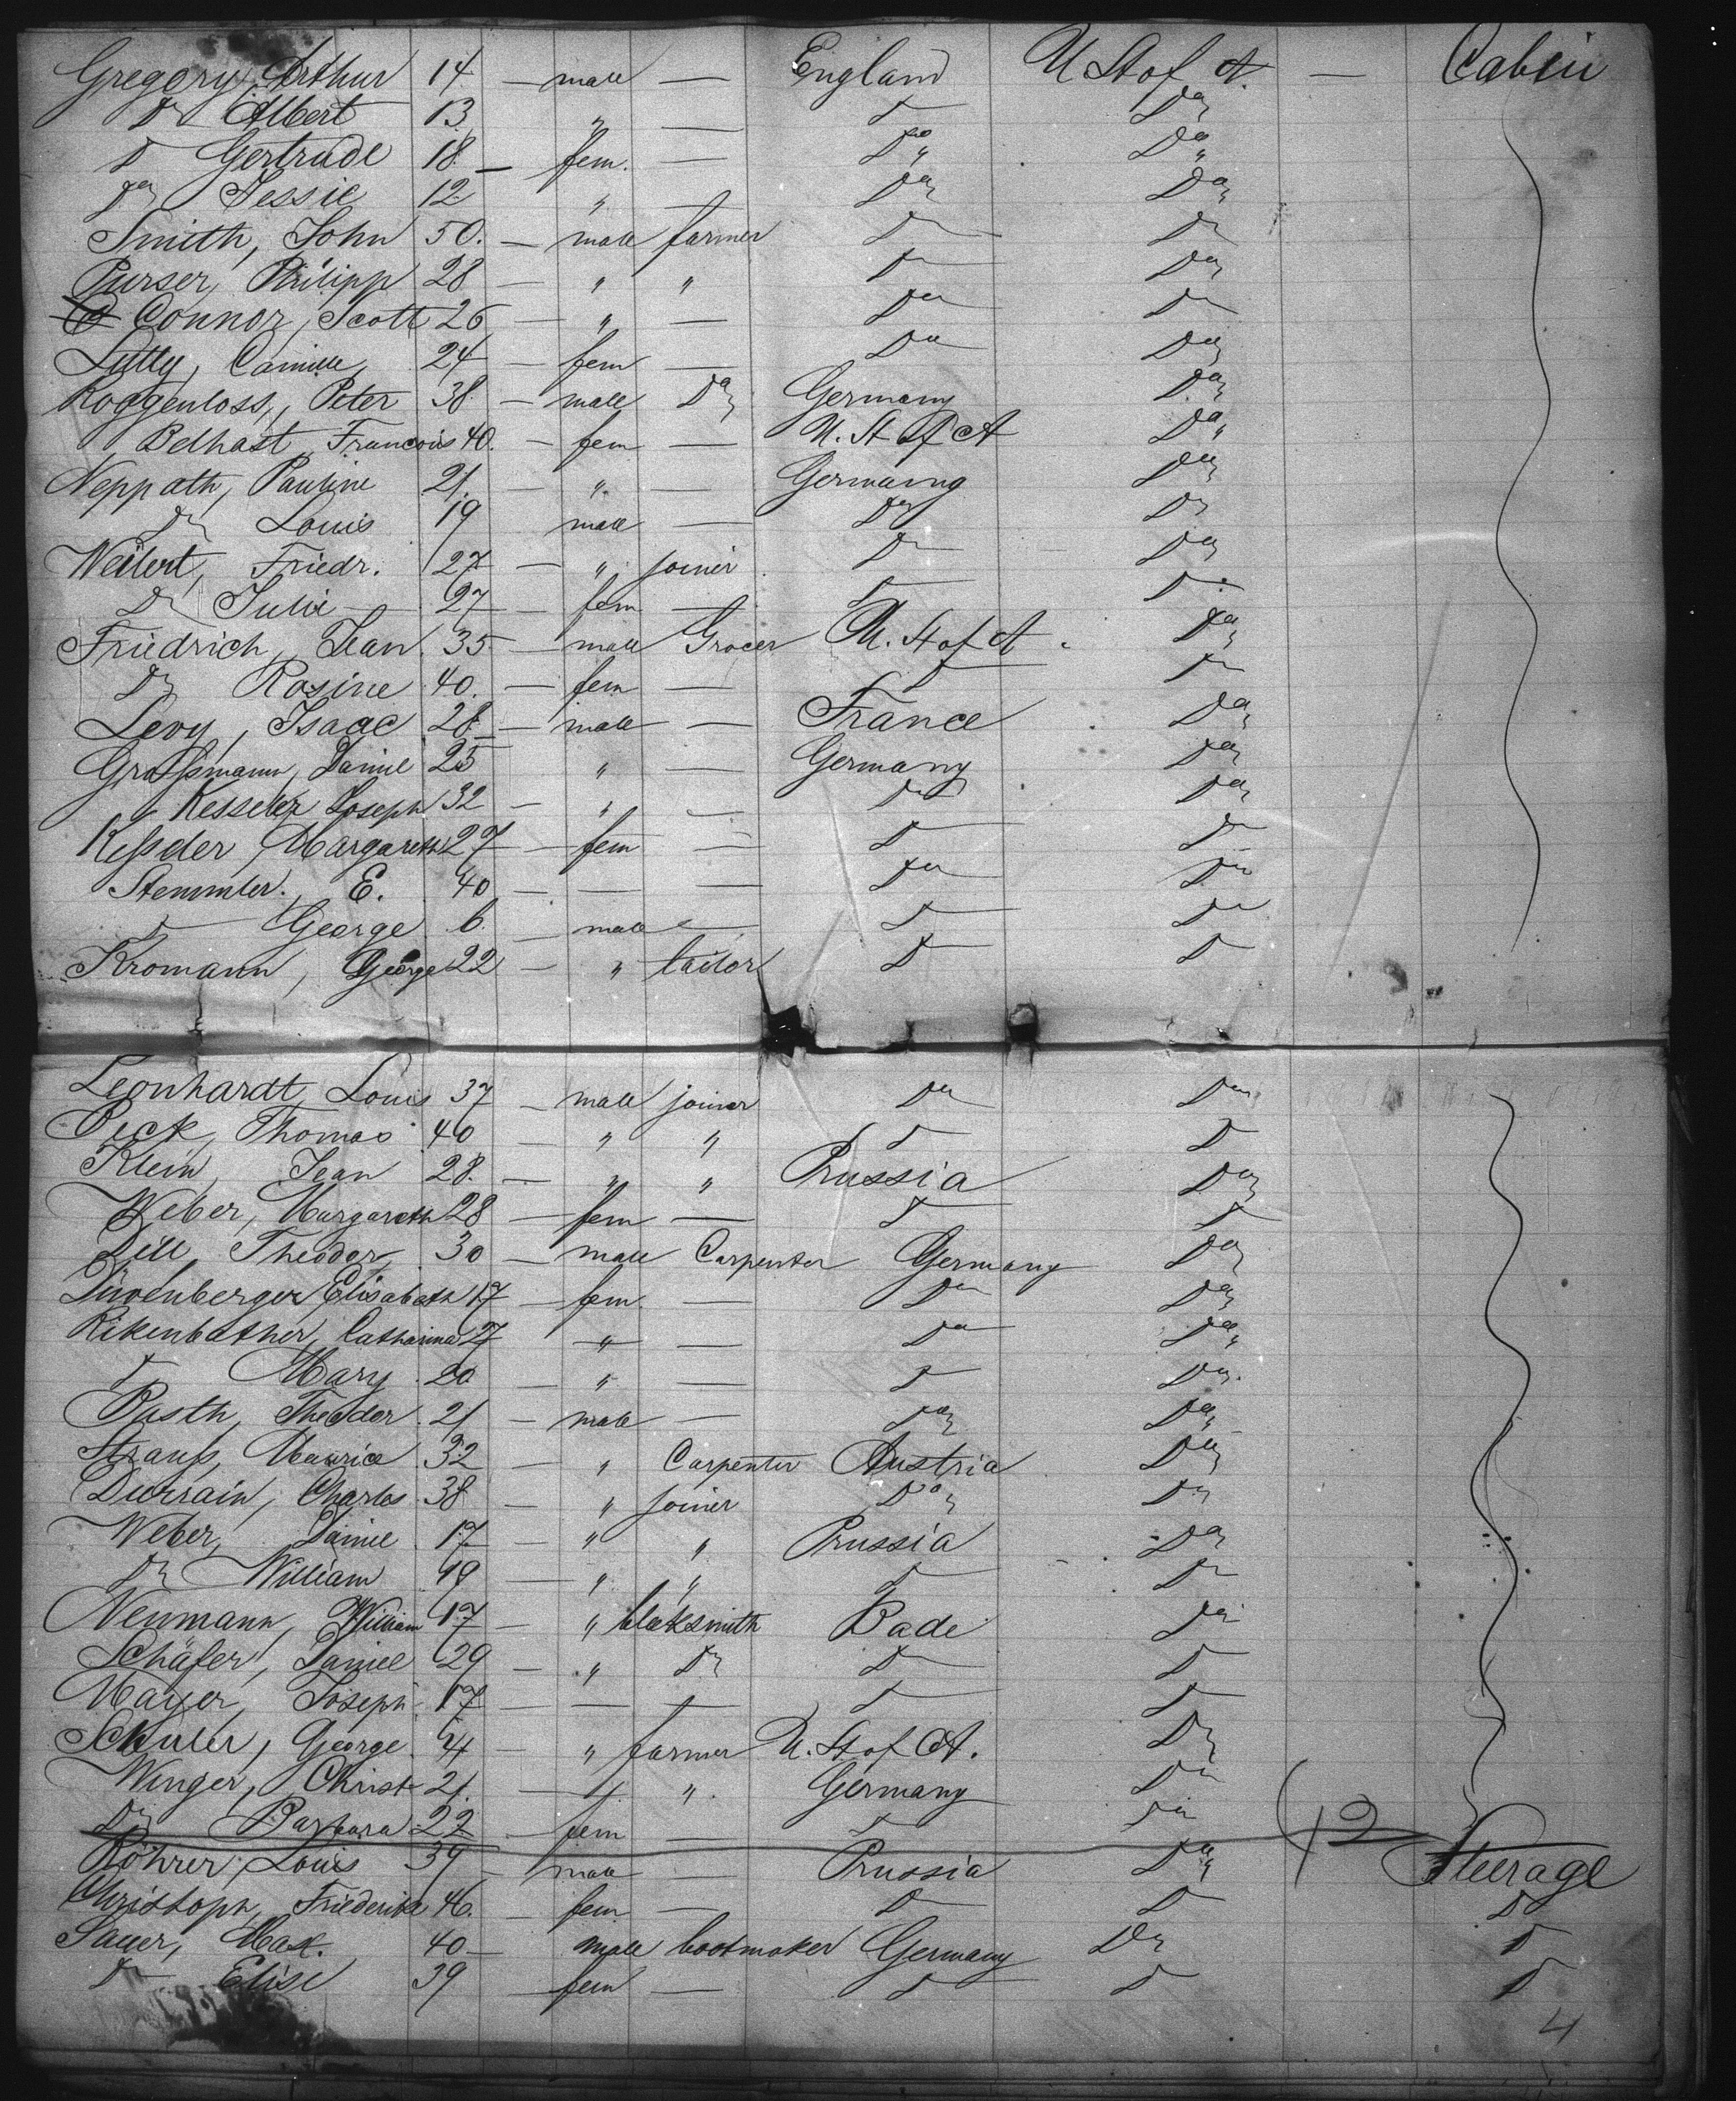 Gregory, Arthur 14 — male — England U St of A. — Cabin
Do Albert 13 " — Do Do
Do Gertrude 18 — fem. — Do Do
Do Jessie 12 " — Do Do
Smith, John 50. — male farmer Do Do
Purser, Philipp 28 — " " Do Do
Connor, Scott 26 — " — Do Do
Lutty, Camille 24 — fem — Do Do
Roggenloss, Peter 38. — male Do Germany Do
Belhast, Francois 40. — fem — U. St of A Do
Neppath, Pauline 21. — " — Germany Do
Do Louis 19 male — Do Do
Weibert, Friedr. 27 — " joiner Do Do
Do Julie — 27 — fem — Do Do
Friedrich, Jean 35 — male Grocer U. St of A. Do
Do Rosine 40. — fem — Do Do
Levy, Isaac 28 — male — France Do
Graffsmann, Daniel 25 " — Germany Do
Kesseler Joseph 32 — " — Do Do
Kessler, Margareth 27 — fem — Do Do
Stemmler. E. 40 — — — Do Do
Do George 6. — male — Do Do
Kromann, George 22 — " tailor Do Do
Leonhardt, Louis 37 — male joiner Do Do
Peck, Thomas 40 — " " Do Do
Klein, Jean 28. — " " Prussia Do
Weber, Margareth 28 — fem — Do Do
Dill, Theodor 30 — male Carpenter Germany Do
Elisabeth 17 — fem — Do Do
Rikenbather, Catharina 27 " — Do Do
Do Mary 20 — " — Do Do
Basth, Theodor 21 — male — Do Do
Strauss, Maurice 32 — " Carpenter Austria Do
Durrain, Charles 38 — " joiner Do Do
Weber, Daniel 17 — " " Prussia Do
Do William 19 — " " Do Do
Neumann, William 17 — " blacksmith Bade Do
Schäfer, Daniel 29 — " Do Do Do
Mayer, Joseph 17 — — Do Do
Schuler, George — " farmer U. St of A. Do
Winger, Christ 21. — " " Germany Do
Do Barbara 22 — fem — Do Do
Röhrer, Louis 39 — male — Prussia Do Steerage
Christoph, Friederike 46. — fem — Do Do Do
Sauer, Max. 40 — male bootmaker Germany Do Do
Do Elise 39 — fem — Do Do Do
4